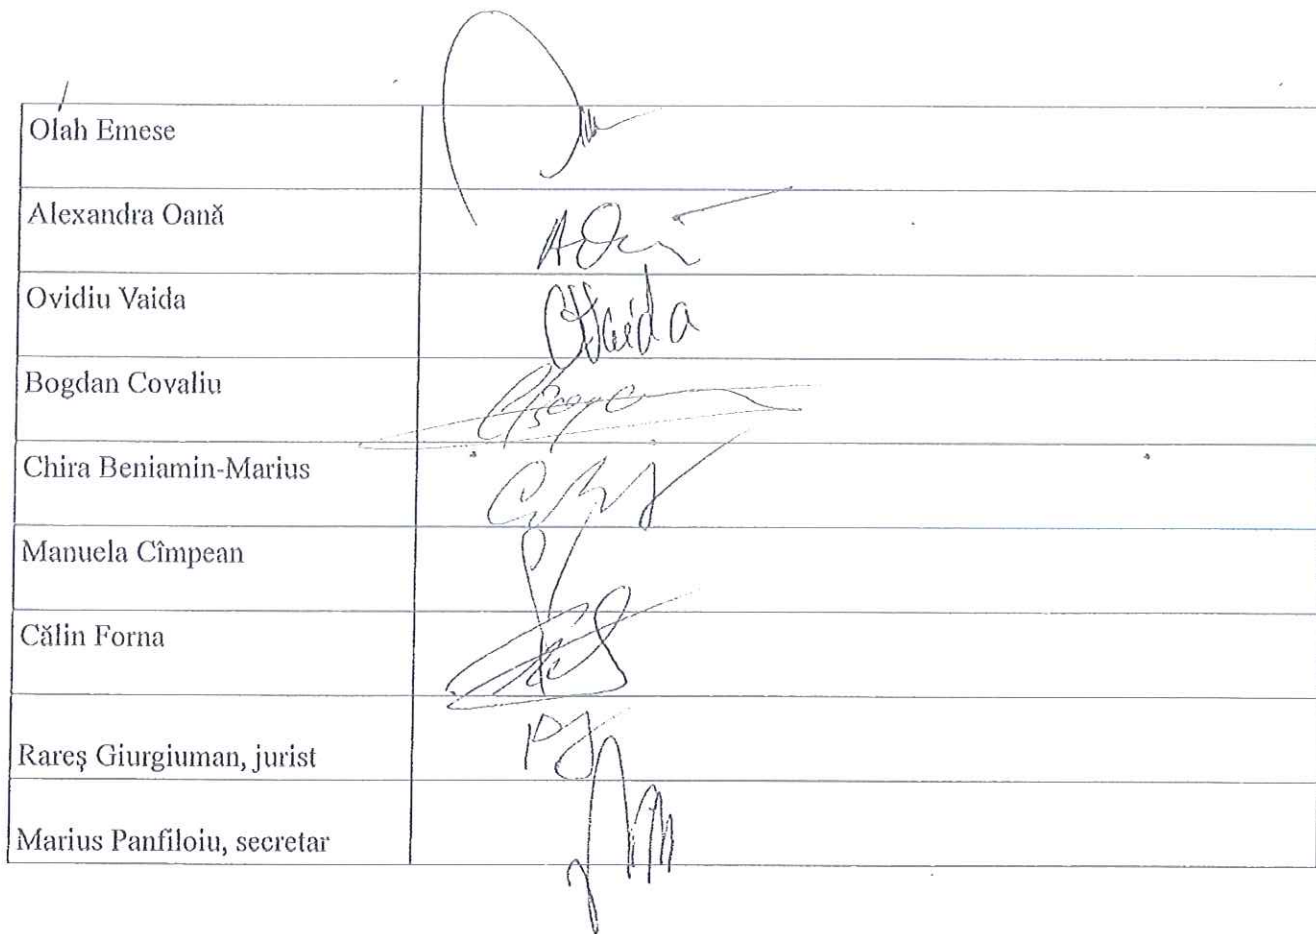 Olah Emese
Alexandra Oană
Ovidiu Vaida
Bogdan Covaliu
Chira Beniamin-Marius
Manuela Cîmpean
Călin Forna
Rareş Giurgiuman, jurist
Marius Panfiloiu, secretar